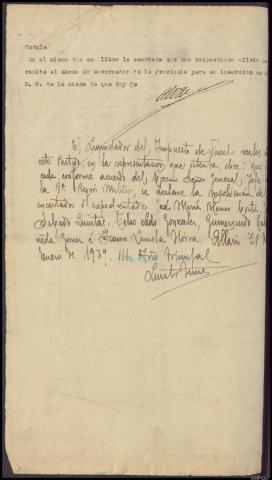 Cumplo
En el mismo dia se libra la acordada que con respetuoso oficio se
remite al Excmo Sr Governador de la Provincia para su insercion en el
B. O. de la misma de que doy fe
El Liquidador del Impuesto de Derechos reales
este Partido en la representacion que ostenta dice: Que
conforme acuerdo del Excmo Señor General, Jefe
la 8ª Region Militar, se declare la insolvencia de
encartados o expedientados José María Blanco
Salgado Quintas, Celso Cado Gonzalez, Gumersindo
Gomez é Isauro Lamela Allariz 31
Enero de 1939. III Año Triunfal